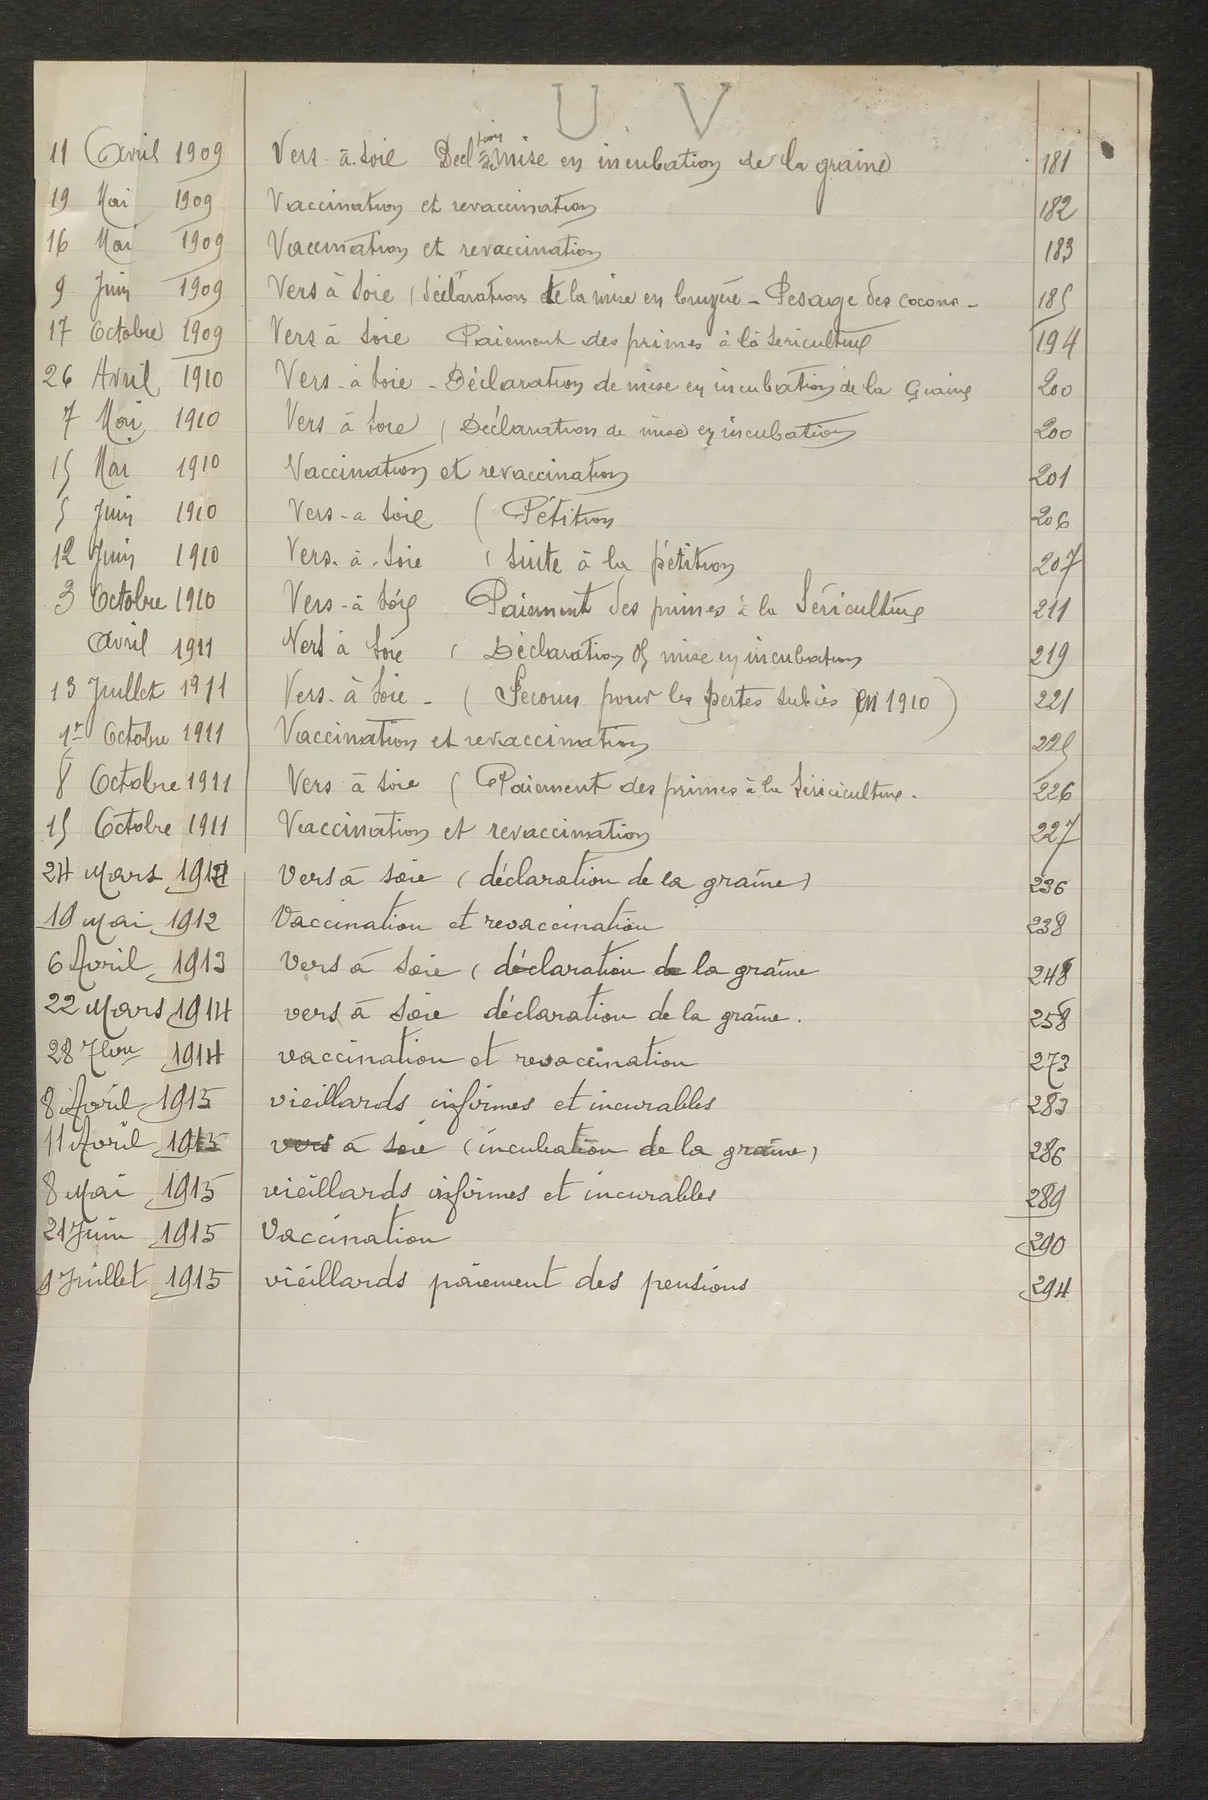 U V
11 Avril 1909 Vers-à-Soie Decl tion de mise en incubation de la graine 181
19 Mai 1909 Vaccination et revaccination 182
16 Mai 1909 Vaccination et revaccination 183
9 Juin 1909 Vers à Soie (déclaration de la mise en bruyère - Pesage des cocons - 185
17 Octobre 1909 Vers à Soie Paiement des primes à la sericulture 194
26 Avril 1910 Vers-à Soie - Déclaration de mise en incubation de la Graine 200
7 Mai 1910 Vers à Soie (Déclaration de mise en incubation 200
15 Mai 1910 Vaccination et revaccination 201
5 Juin 1910 Vers-a Soie (Pétition 206
12 Juin 1910 Vers-à-Soie (suite à la pétition 207
3 Octobre 1910 Vers-à Soie Paiement des primes à la Sériculture 211
Avril 1911 Vers à Soie (Déclaration de mise en incubation 219
13 Juillet 1911 Vers-à Soie - (Secours pour les pertes subies en 1910) 221
1er Octobre 1911 Vaccination et revaccination 225
8 Octobre 1911 Vers à soie (Paiement des primes à la Sériciculture. 226
15 Octobre 1911 Vaccination et revaccination 227
24 Mars 1912 Vers à soie (déclaration de la graine) 236
19 Mai 1912 Vaccination et revaccination 238
6 Avril 1913 Vers à soie (déclaration de la graine 248
22 Mars 1914 vers à soie déclaration de la graine. 258
28 7bre 1914 vaccination et revaccination 273
8 Avril 1915 vieillards infirmes et incurables 283
11 Avril 1915 vers à soie (incubation de la graine) 286
8 Mai 1915 vieillards infirmes et incurables 289
21 Juin 1915 Vaccination 290
9 Juillet 1915 vieillards paiement des pensions 294